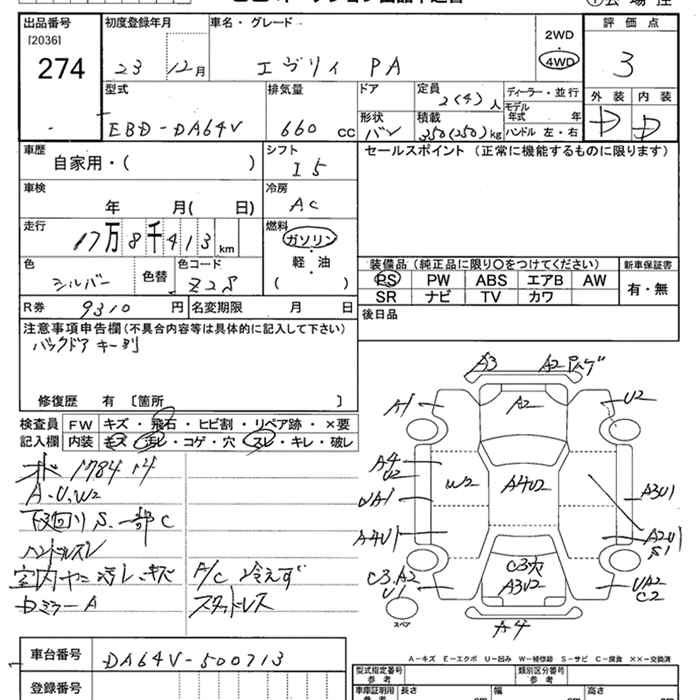 出品番号 初度登録年月 車名・グレード 2WD 4WD 評価点
[2036]
274 23 12月 エブリィ PA 3
型式 排気量 ドア 定員 2(4)人 ディーラー・並行 外装 内装
EBD-DA64V 660 cc 形状 バン 積載 250(250)kg モデル年式 年 ハンドル 左・右 D D
車歴 自家用・( ) シフト I5 セールスポイント (正常に機能するものに限ります)
車検 年 月( 日) 冷房 AC
走行 17万8千413km 燃料 ガソリン 軽・油 ( )
色 シルバー 色替 色コード Z2S
装備品(純正品に限り○をつけてください) 新車保証書
PS PW ABS エアB AW 有・無
SR ナビ TV カワ
R券 9310円 名変期限 月 日 後日品
注意事項申告欄(不具合内容等は具体的に記入して下さい)
バックドア キー別
修復歴 有〔箇所 〕
検査員記入欄 FW キズ・飛石・ヒビ割・リペア跡・×要
内装 キズ・汚レ・コゲ・穴・スレ・キレ・破レ
A・U、W2
下回りS、一部C
ハンドルスレ
室内ヤニ汚レ・キズ A/C 冷えず
Dミラー A スタッドレス
A3 A2
A1 A2 U2
A4 U2 W2 A4U2
UA1 A3U1
A4U1 A2U1 S1
C3穴 A3U2
C3.A2 U1 UA2 C2
スペア A4
A-キズ E-エクボ U-凹み W-補修跡 S-サビ C-腐食 ××-交換済
車台番号 DA64V-500713
登録番号
型式指定番号 類別区分番号
参考
車庫証明用 長さ 幅 高さ
参考 cm cm cm